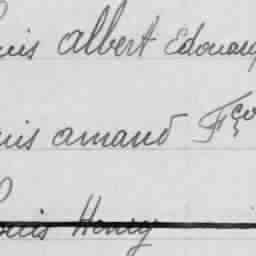 Louis Albert Edouard
Louis Amand Fço
Louis Henry